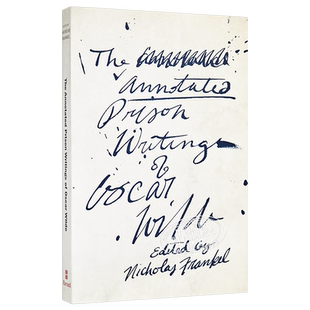 The
Annotated
Prison
Writings
of
Oscar
Wilde
Edited by
Nicholas Frankel
The Annotated Prison Writings of Oscar Wilde